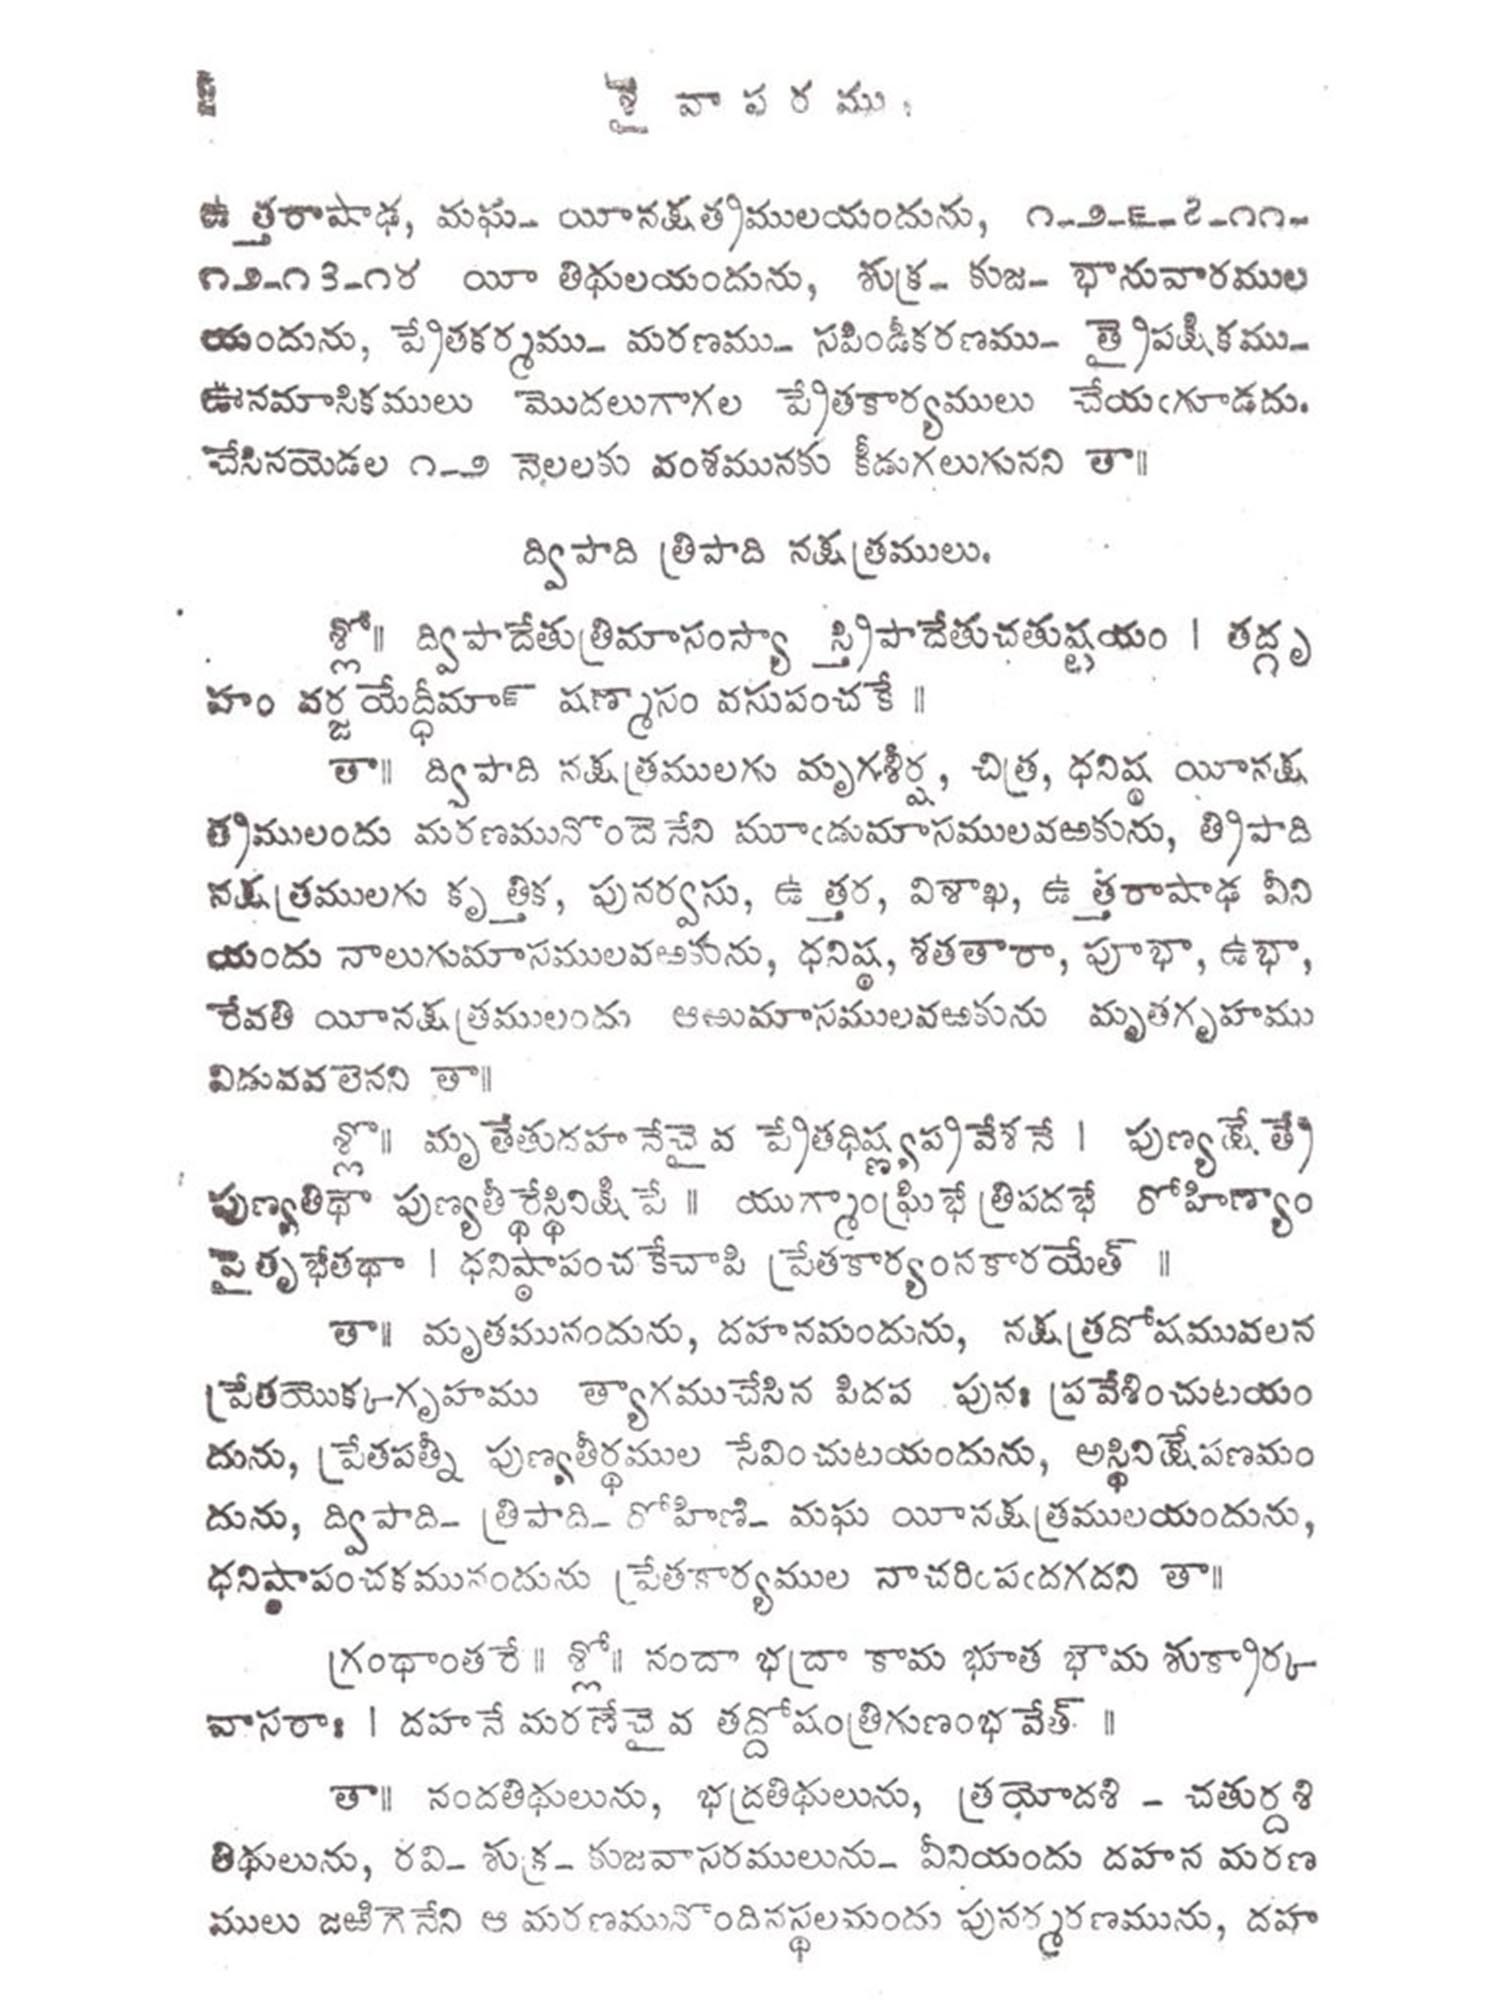 శైవాపరము.
ఉత్తరాషాఢ, మఘ- యీనక్షత్రములయందును, ౧-౨-౬-౭-౧౧-
౧౨-౧౩-౧౪ యీ తిథులయందును, శుక్ర- కుజ- భానువారముల
యందును, ప్రేతకర్మము- మరణము- సపిండీకరణము- త్రైపక్షికము-
ఊనమాసికములు మొదలుగాగల ప్రేతకార్యములు చేయఁగూడదు.
చేసినయెడల ౧-౨ నెలలకు వంశమునకు కీడుగలుగునని తా॥
ద్విపాది త్రిపాది నక్షత్రములు.
శ్లో॥ ద్విపాదేతుత్రిమాసంస్యా స్త్రిపాదేతుచతుష్టయం । తద్గృ
హం వర్జయేద్ధీమా౯ షణ్మాసం వసుపంచకే ॥
తా॥ ద్విపాది నక్షత్రములగు మృగశీర్ష, చిత్ర, ధనిష్ఠ యీనక్ష
త్రములందు మరణమునొందెనేని మూఁడుమాసములవఱకును, త్రిపాది
నక్షత్రములగు కృత్తిక, పునర్వసు, ఉత్తర, విశాఖ, ఉత్తరాషాఢ వీని
యందు నాలుగుమాసములవఱకును, ధనిష్ఠ, శతతారా, పూభా, ఉభా,
రేవతి యీనక్షత్రములందు ఆఱుమాసములవఱకును మృతగృహము
విడువవలెనని తా॥
శ్లో॥ మృతేతుదహనేచైవ ప్రేతధిష్ణ్యప్రవేశనే । పుణ్యక్షేత్రే
పుణ్యతిథౌ పుణ్యతీర్థేస్థినిక్షిపే ॥ యుగ్మాంఘ్రిభే త్రిపదభే రోహిణ్యాం
పైతృభేతథా । ధనిష్ఠాపంచకేచాపి ప్రేతకార్యంనకారయేత్ ॥
తా॥ మృతమునందును, దహనమందును, నక్షత్రదోషమువలన
ప్రేతయొక్కగృహము త్యాగముచేసిన పిదప పునః ప్రవేశించుటయం
దును, ప్రేతపత్నీ పుణ్యతీర్థముల సేవించుటయందును, అస్థినిక్షేపణమం
దును, ద్విపాది- త్రిపాది- రోహిణి- మఘ యీనక్షత్రములయందును,
ధనిష్ఠాపంచకమునందును ప్రేతకార్యముల నాచరిఁపఁదగదని తా॥
గ్రంథాంతరే॥ శ్లో॥ నందా భద్రా కామ భూత భౌమ శుక్రార్క
వాసరాః । దహనే మరణేచైవ తద్దోషంత్రిగుణంభవేత్ ॥
తా॥ నందతిథులును, భద్రతిథులును, త్రయోదశి - చతుర్దశి
తిథులును, రవి- శుక్ర- కుజవాసరములును- వీనియందు దహన మరణ
ములు జఱిగెనేని ఆ మరణమునొందినస్థలమందు పునర్మరణమును, దహ